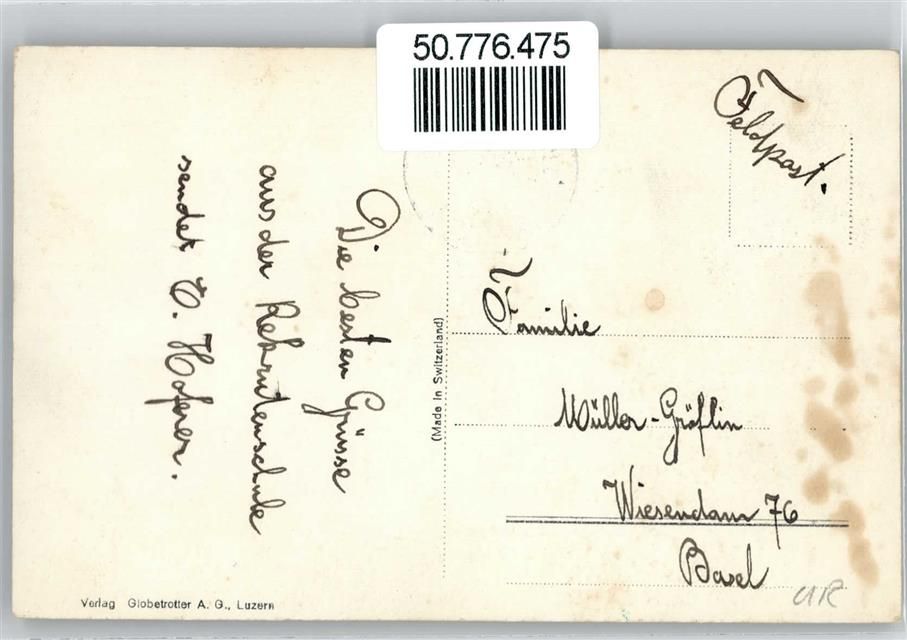 50.776.475
Feldpost.
Die besten Grüsse
aus der Rekrutenschule
sendet E. Hoferer.
(Made in Switzerland)
Familie
Müller-Gräflin
Wiesendam 76
Basel
UR
Verlag Globetrotter A. G., Luzern